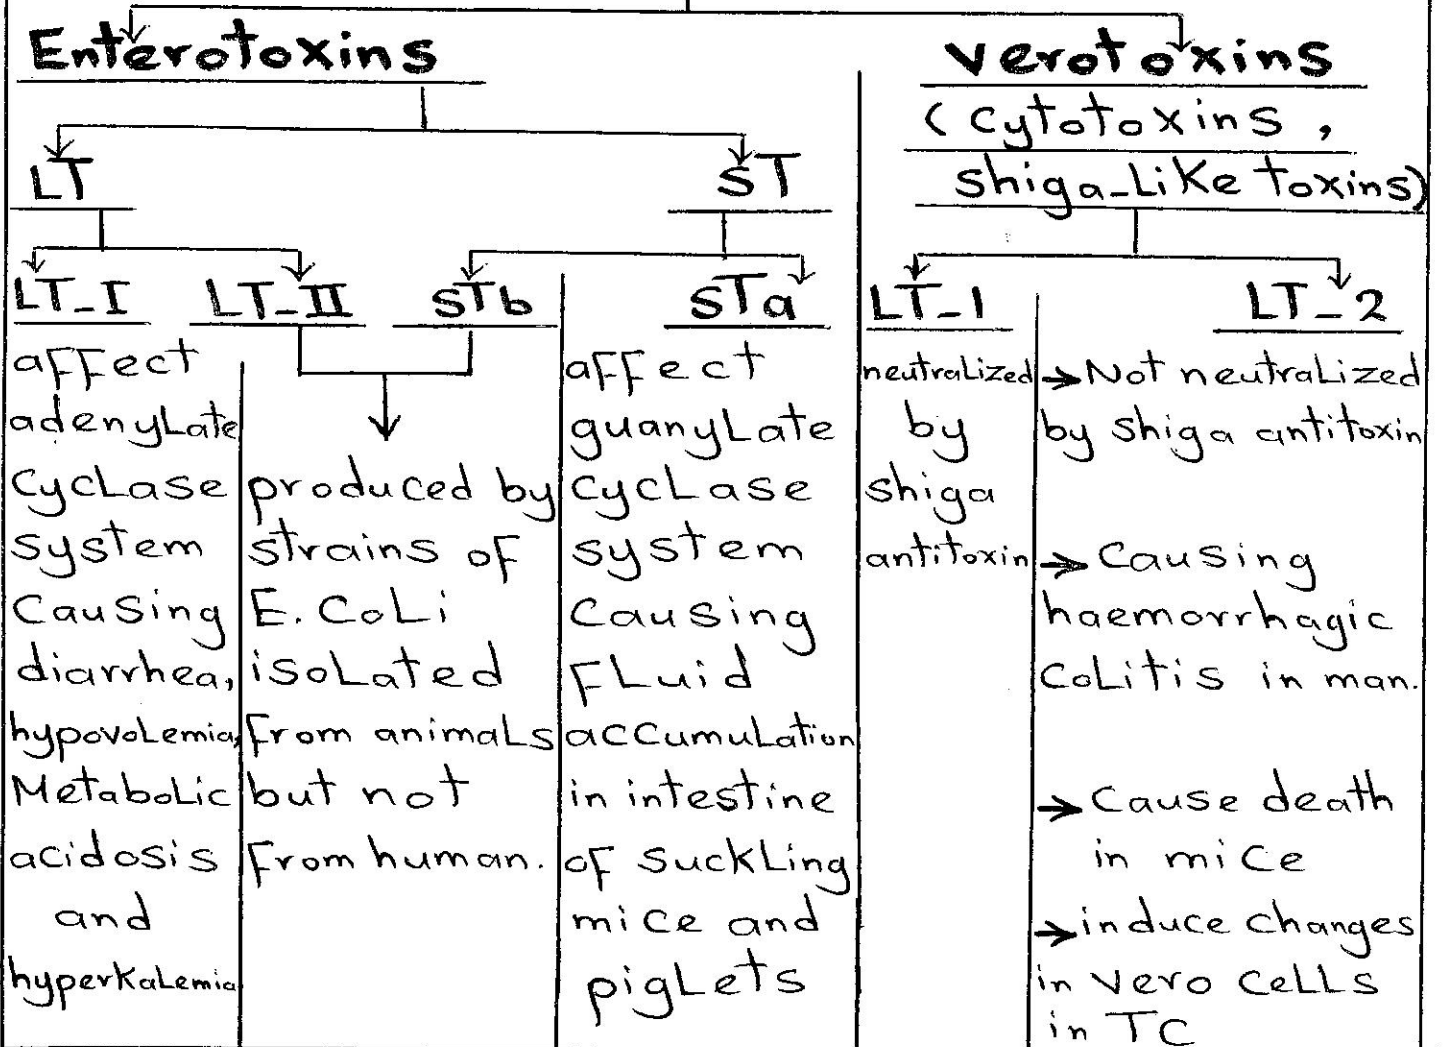 Enterotoxins
LT
ST
LT-I
LT-II
STb
STa
affect
adenylate
cyclase
system
causing
diarrhea,
hypovolemia,
Metabolic
acidosis
and
hyperkalemia
produced by
strains of
E. Coli
isolated
from animals
but not
from human.
affect
guanylate
cyclase
system
causing
fluid
accumulation
in intestine
of suckling
mice and
piglets
Verotoxins
(cytotoxins,
shiga-like toxins)
LT-1
LT-2
neutralized
by
shiga
antitoxin
→ Not neutralized
by shiga antitoxin
→ causing
haemorrhagic
colitis in man.
→ cause death
in mice
→ induce changes
in vero cells
in TC